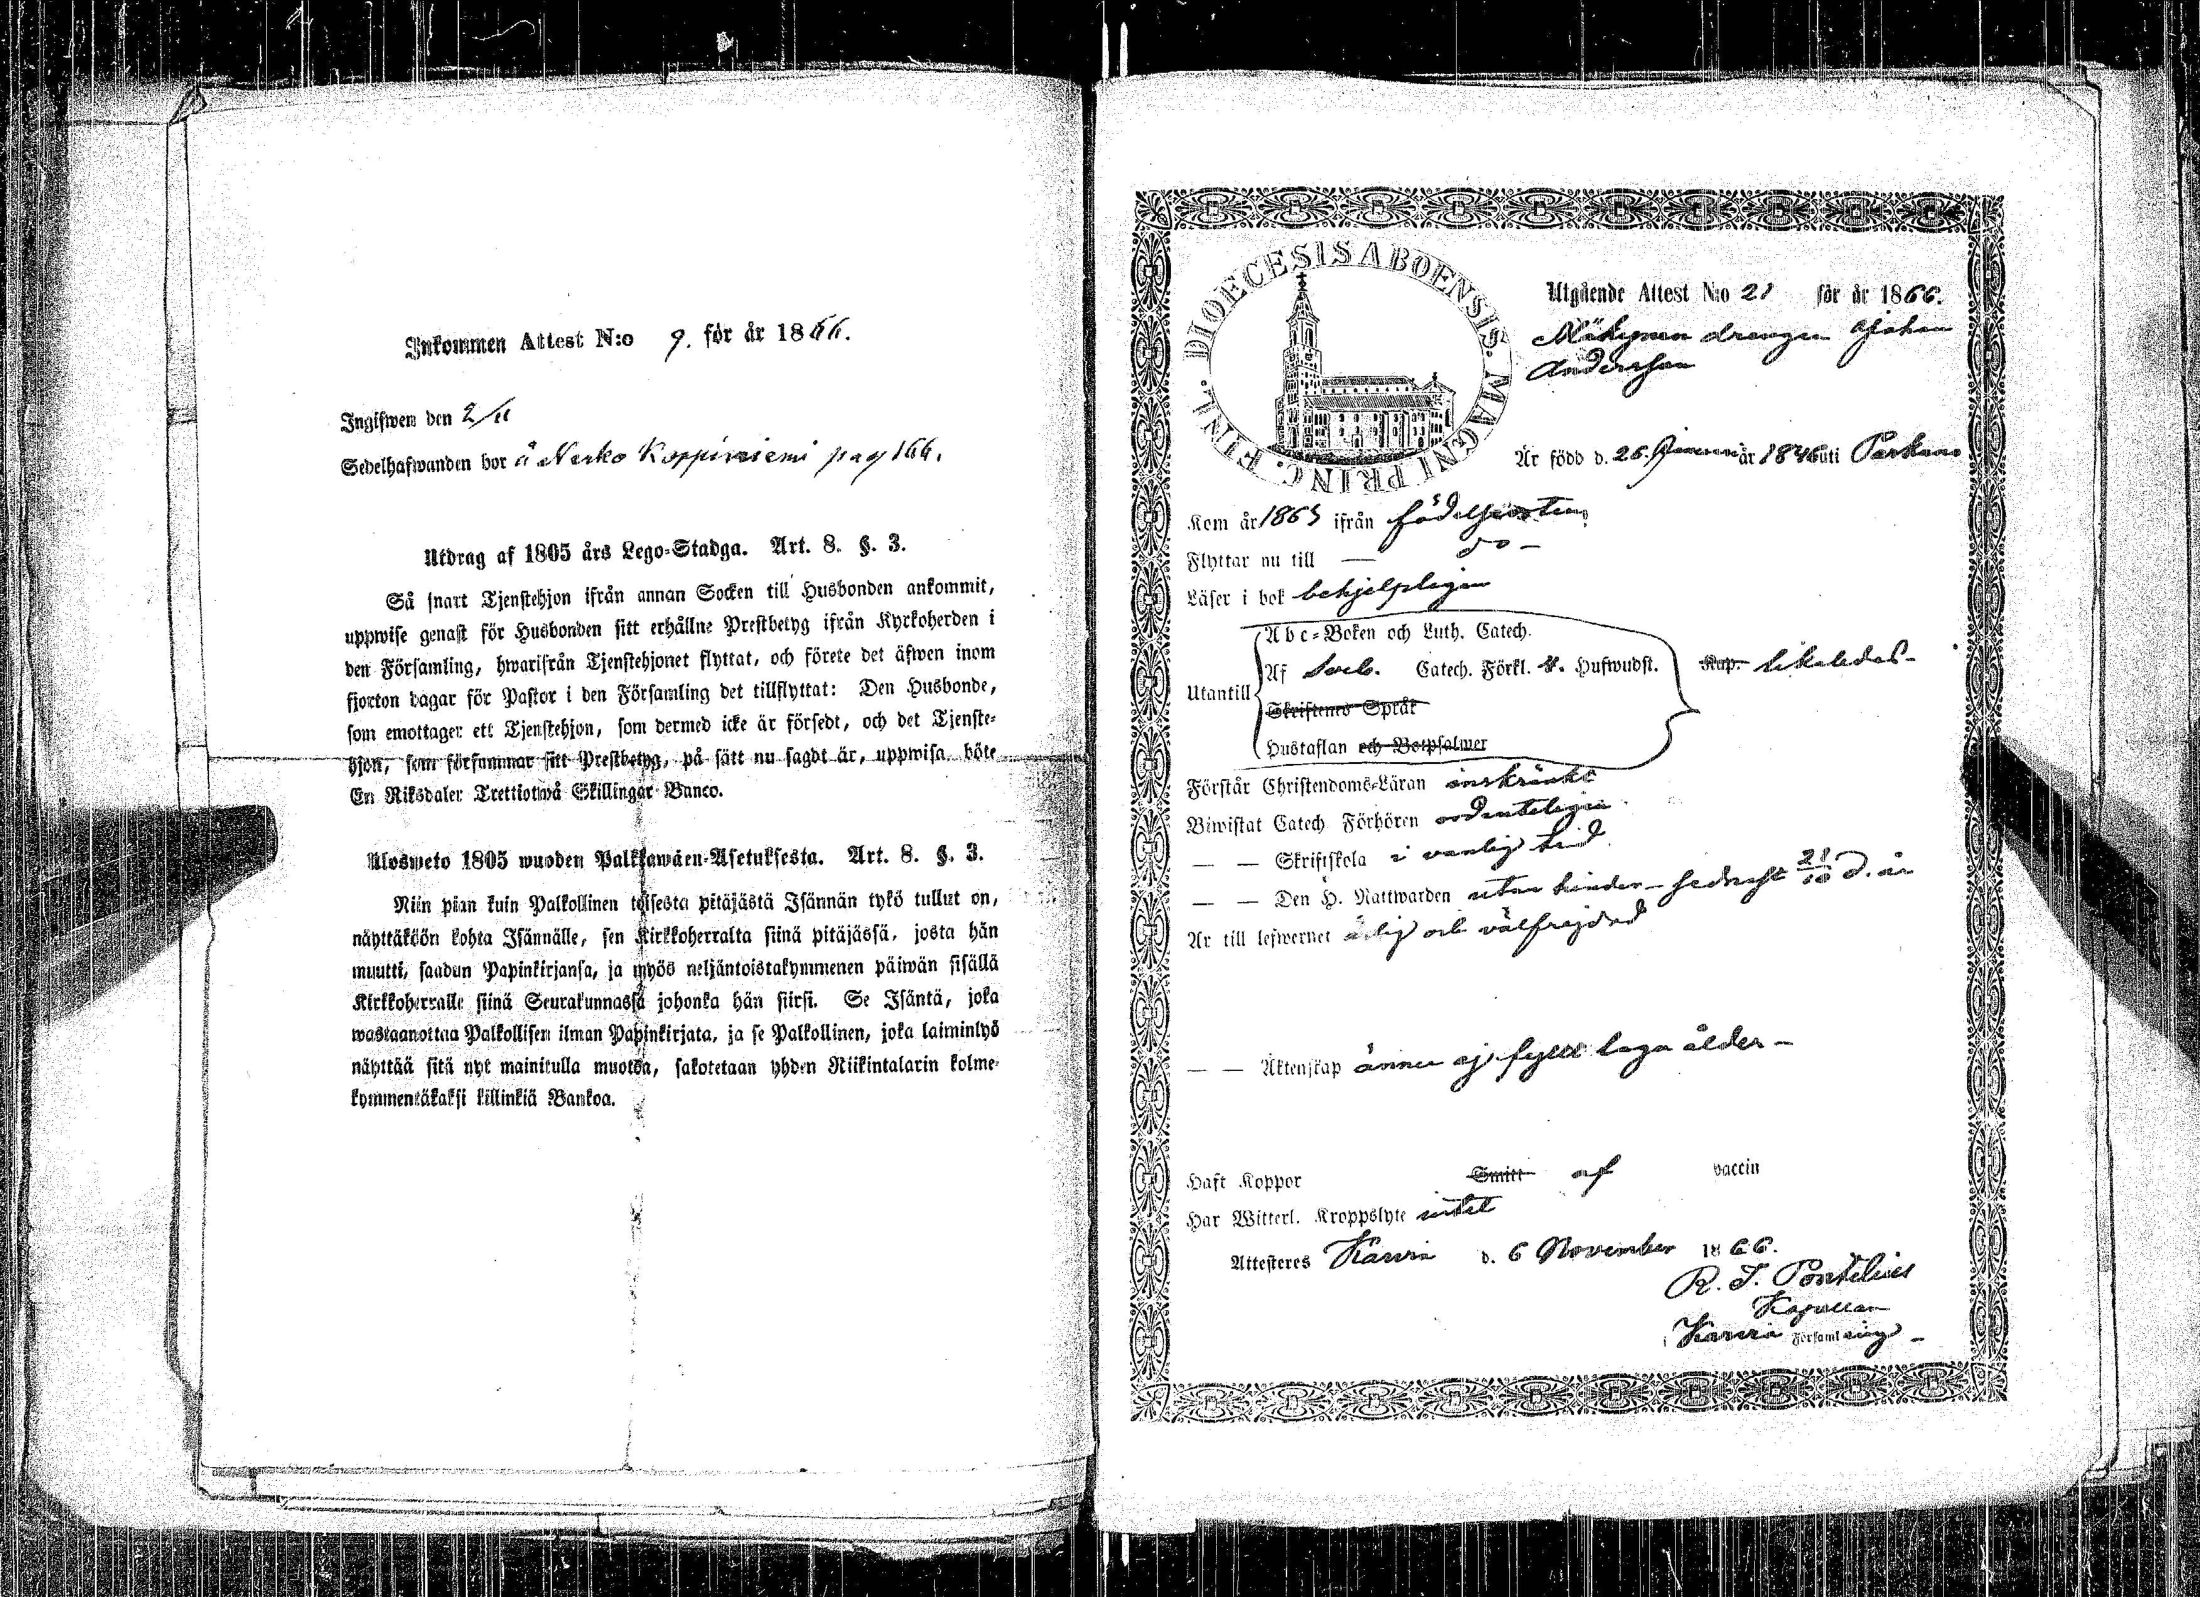 Inkommen Attest N:o 9. för år 1866.
Ingifwen den 2/11
Sedelhafwanden bor å Nerko Koppiniemi pag 166.
Utdrag af 1805 års Lego-Stadga. Art. 8. §. 3.
Så snart Tjenstehjon ifrån annan Socken till Husbonden ankommit,
uppwise genast för Husbonden sitt erhållne Prestbetyg ifrån Kyrkoherden i
den Församling, hwarifrån Tjenstehjonet flyttat, och förete det äfwen inom
fjorton dagar för Pastor i den Församling det tillflyttat: Den Husbonde,
som emottager ett Tjenstehjon, som dermed icke är försedt, och det Tjenste-
hjon, som försummar sitt Prestbetyg, på sätt nu sagdt är, uppwisa, böte
En Riksdaler Trettiotwå Skillingar Banco.
Ulosweto 1805 wuoden Palkkawäen-Asetuksesta. Art. 8. §. 3.
Niin pian kuin Palkollinen toisesta pitäjästä Isännän tykö tullut on,
näyttäköön kohta Isännälle, sen Kirkkoherralta siinä pitäjässä, josta hän
muutti, saadun Papinkirjansa, ja myös neljäntoistakymmenen päiwän sisällä
Kirkkoherralle siinä Seurakunnassa johonka hän siirsi. Se Isäntä, joka
wastaanottaa Palkollisen ilman Papinkirjata, ja se Palkollinen, joka laiminlyö
näyttää sitä nyt mainitulla muotoa, sakotetaan yhden Riikintalarin kolme-
kymmentäkaksi killinkiä Bankoa.
DIOECESIS ABOENSIS. MAGNI PRINC. FINL.
Utgående Attest N:o 21 för år 1866.
drengen Johan
Andersson
Är född d. 26. år 1846 uti Parkano
Kom år 1865 ifrån födelseorten
Flyttar nu till — do —
Läser i bok behjelpligen
Abc-Boken och Luth. Catech.
Utantill Af Sveb. Catech. Förkl. 4. Hufwudst. Kap. likaledes-
Skriftens Språk
Hustaflan och Botpsalmer
Förstår Christendoms-Läran inskränkt
Biwistat Catech. Förhören ordenteligen
— — Skriftskola i vanlig tid
— — Den H. Nattwarden utan hinder - sednast 21/10 d. år
Är till lefwernet ärlig och välfrejdad
— — Äktenskap ännu ej fylld laga ålder —
Haft Koppor Smitt af vaccin
Har Witterl. Kroppslyte intet
Attesteres Karvia d. 6 November 1866.
R. J. Pontelius
Kapellan
i Karvia Församling —